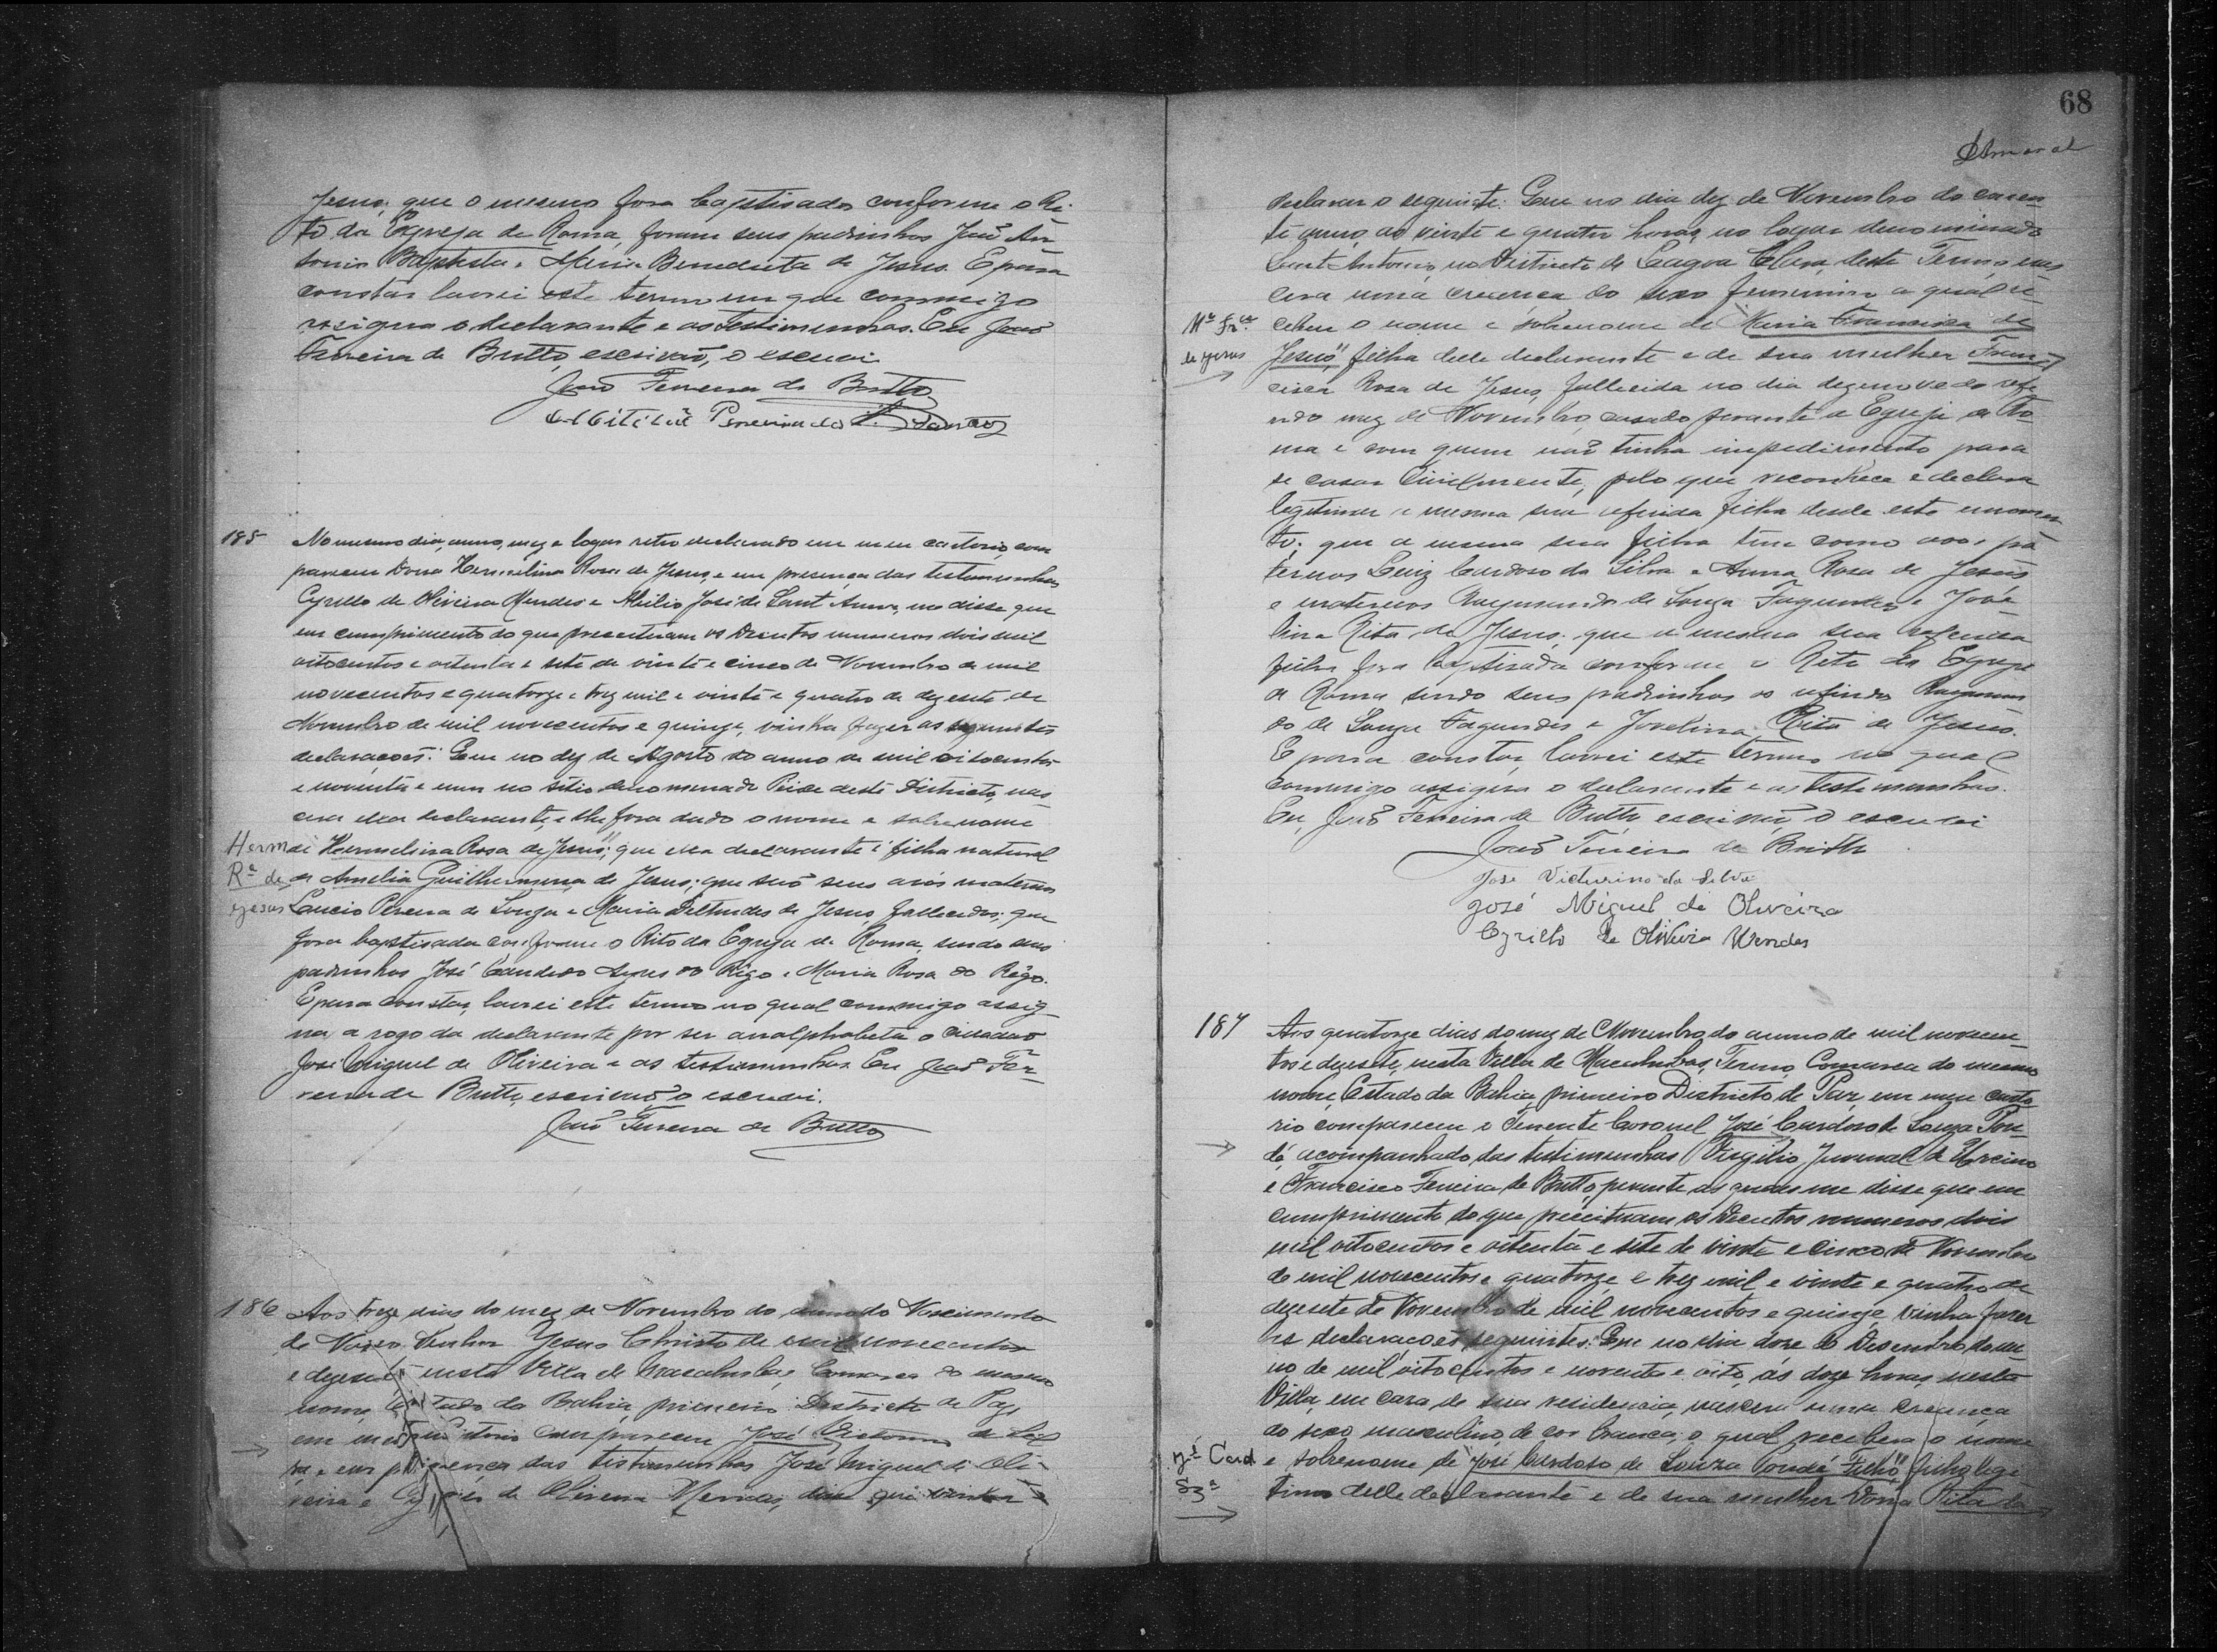 Jesus; que o mesmo fora baptisado conforme o Ri-
to da Egreja de Roma, foram seus padrinhos João An-
tonio Baptista e Maria Benedicta de Jesus. E para
constar lavrei este termo em que commigo
assigna o declarante e as testimunhas. Eu João
Ferreira de Britto, escrivão, o escrevi.
João Ferreira de Britto
Pereira dos Santos
185
No mesmo dia, anno, mez e logar retro declarado em meu cartorio, com
pareceu Dona Hermelina Rosa de Jesus, e em presença das testimunhas
Cyrillo de Oliveira Mendes e Abilio José de Sant Anna, me disse que
em cumprimento do que preceituam os Decretos numeros dois mil
oitocentos e oitenta e sete de vinte e cinco de Novembro de mil
novecentos e quatorze e trez mil e vinte e quatro de dezesete de
Novembro de mil novecentos e quinze, vinha fazer as seguintes
declarações: Que no dez de Agosto do anno de mil oitocentos
e noventa e um no sitio denominado Peixe deste Districto, nas
cera ella declarante, e lhe fora dado o nome e sobrenome
Herm
de Hermelina Rosa de Jesus"; que ella declarante é filha natural
Rª de
de Amelia Guilhermina de Jesus; que são seus avós maternos
Jesus
Lancio Pereira de Souza e Maria Deltrudes de Jesus, fallecidos; que
fora baptisada conforme o Rito da Egreja de Roma, sendo seus
padrinhos José Candido Ayres do Rêgo e Maria Rosa do Rêgo.
E para constar, lavrei este termo no qual commigo assig-
na, a rogo da declarante por ser analphabeta o cidadão
José Miguel de Oliveira e as testimunhas. Eu João Fer-
reira de Britto, escrivão, o escrevi.
João Ferreira de Britto
186
Aos treze dias do mez de Novembro do anno do Nascimento
de Nosso Senhor Jesus Christo de mil novecentos
e dezesete nesta Villa de Macahubas, Comarca do mesmo
nome, Estado da Bahia, primeiro Districto de Paz
em meu Cartorio compareceu José Victorino da Sil
va e em presença das testimunhas José Miguel de Oli-
veira e Cyrillo de Oliveira Mendes, disse que vinha
68
Amaral
declarar o seguinte: Que no dia dez de Novembro do corren
te anno, as vinte e quatro horas, no logar denominado
Sant Antonio, no Districto de Lagoa Clara, deste Termo, nas
cera uma creança do sexo femenino a qual re-
Mª Frcª
cebeu o nome e sobrenome de "Maria Francisca de
de Jesus
Jesus", filha delle declarante e de sua mulher Fran-
cisca Rosa de Jesus, fallecida no dia dezenove do refe
rido mez de Novembro, casado perante a Egreja de Ro-
ma e com quem não tinha impedimento para
se casar Civilmente, pelo que reconhece e declara
legitimar a mesma sua referida filha desde este momen
to; que a mesma sua filha tem como avos pa
ternos Luiz Cardoso da Silva e Anna Rosa de Jesus
e maternos Raymundo de Souza Fagundes e Jove
lina Rita de Jesus; que a mesma sua referida
filha fora baptisada conforme o Rito da Egreja
de Roma sendo seus padrinhos os referidos Raymun
do de Souza Fagundes e Jovelina Rita de Jesus.
E para constar, lavrei este termo no qual
commigo assigna o declarante e as testemunhas.
Eu, João Ferreira de Britto, escrivão, o escrevi
João Ferreira de Britto
José Victurino da Silva
José Miguel de Oliveira
Cyrillo de Oliveira Mendes
187
Aos quatorze dias do mez de Novembro do anno de mil novecen-
tos e dezesete, nesta Villa de Macahubas, Termo, Comarca do mesmo
nome, Estado da Bahia, primeiro Districto de Paz, em meu Carto
rio compareceu o Tenente Coronel José Cardoso de Souza Pon-
dé, acompanhado das testimunhas Virgilio Juvenal de
e Francisco Ferreira de Britto, perante as quaes me disse que em
cumprimento do que preceituam os Decretos numeros dois
mil oitocentos e oitenta e sete de vinte e cinco de Novembro
de mil novecentos e quatorze, e trez mil e vinte e quatro de
dezesete de Novembro de mil novecentos e quinze, vinha fazer
as declarações seguintes: Que no dia doze de Desembro do an-
no de mil oitocentos e noventa e oito, ás doze horas, nesta
Villa em casa de sua residencia, nasceu uma creança
do sexo masculino, de cor branca, o qual recebera o nome
Jé Card
e sobrenome de "José Cardoso de Souza Pondé Filho", filho legi
Szª
timo delle declarante e de sua mulher Dona Rita da